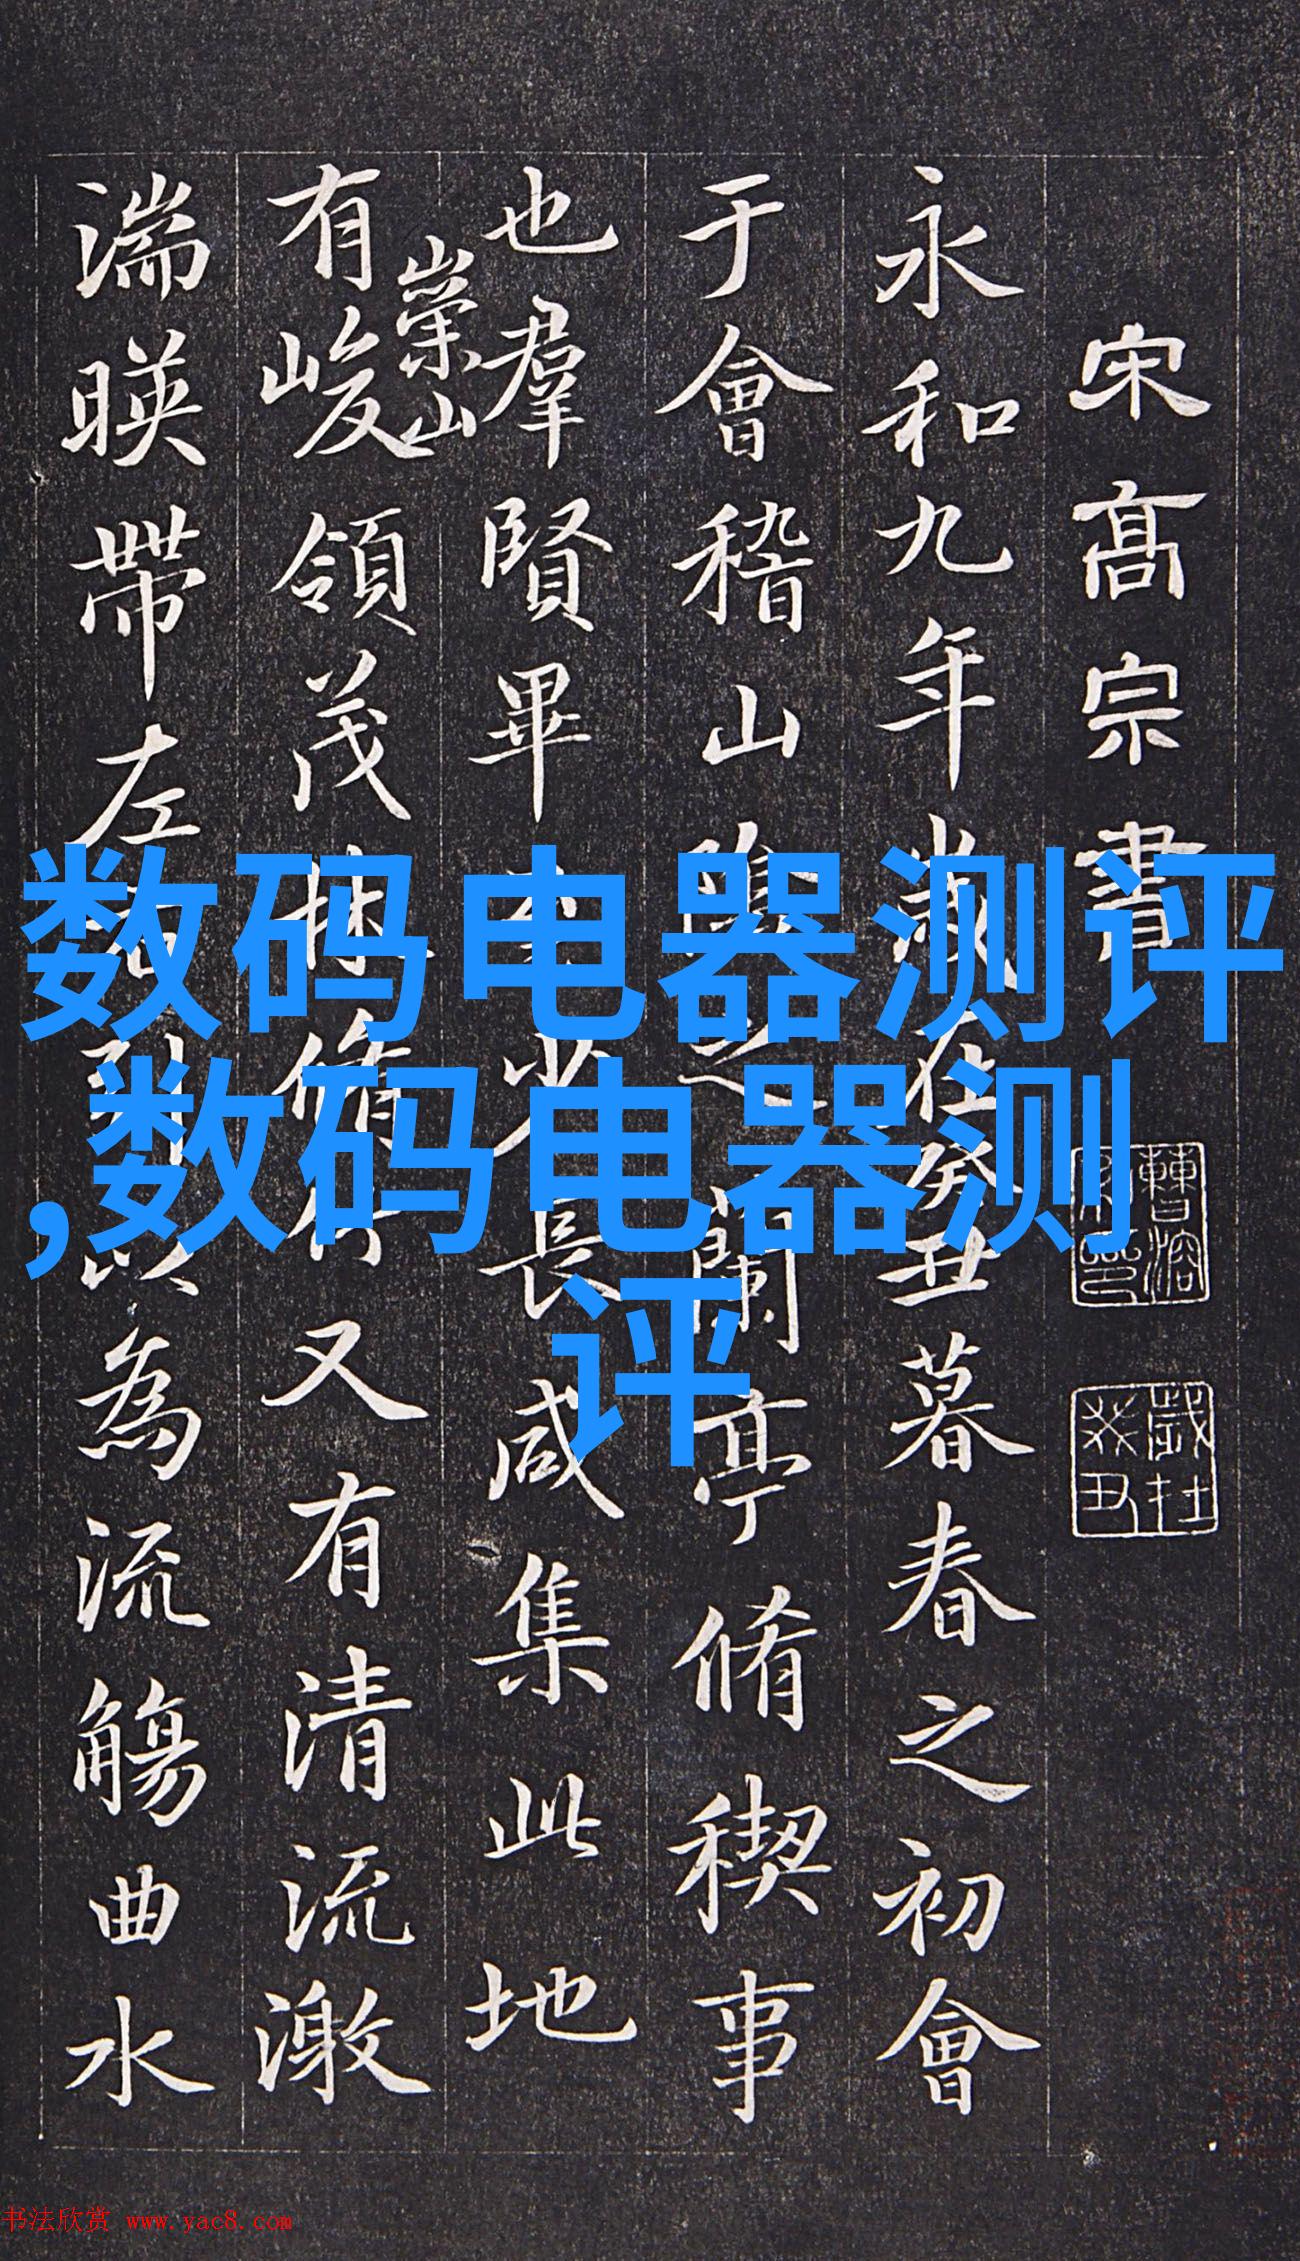 宋高宗書
永和九年歲在癸丑暮春之初會
于會稽山陰之蘭亭脩稧事
也羣賢畢至少長咸集此地
崇山
有峻領茂林脩竹又有清流激
湍暎帶左右引以為流觴曲水
数码电器测评
,数码电器测
评
书法欣赏 www.yac8.com